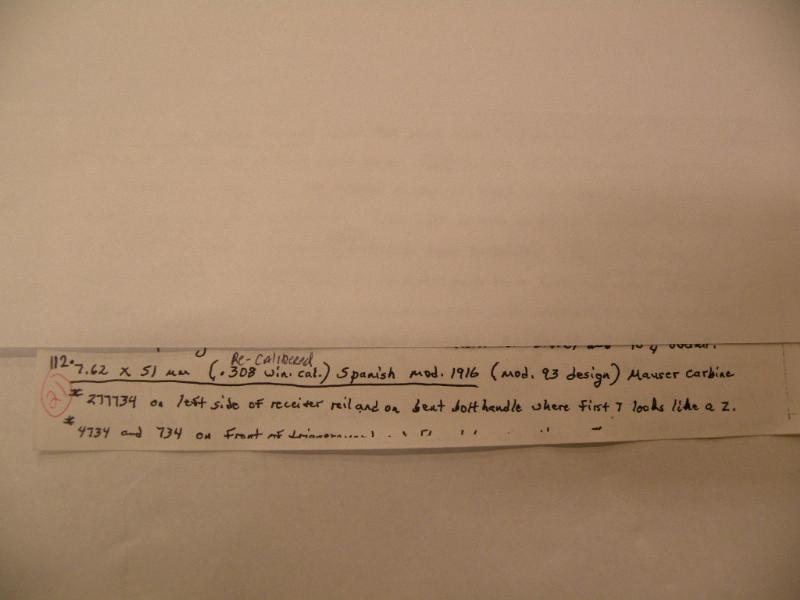 Re-Calibered
112. 7.62 x 51 mm (.308 win. cal.) Spanish mod. 1916 (mod. 93 design) Mauser carbine
21 * 277734 on left side of receiver reil and on bent bolt handle where first 7 looks like a Z.
* 4734 and 734 on front of